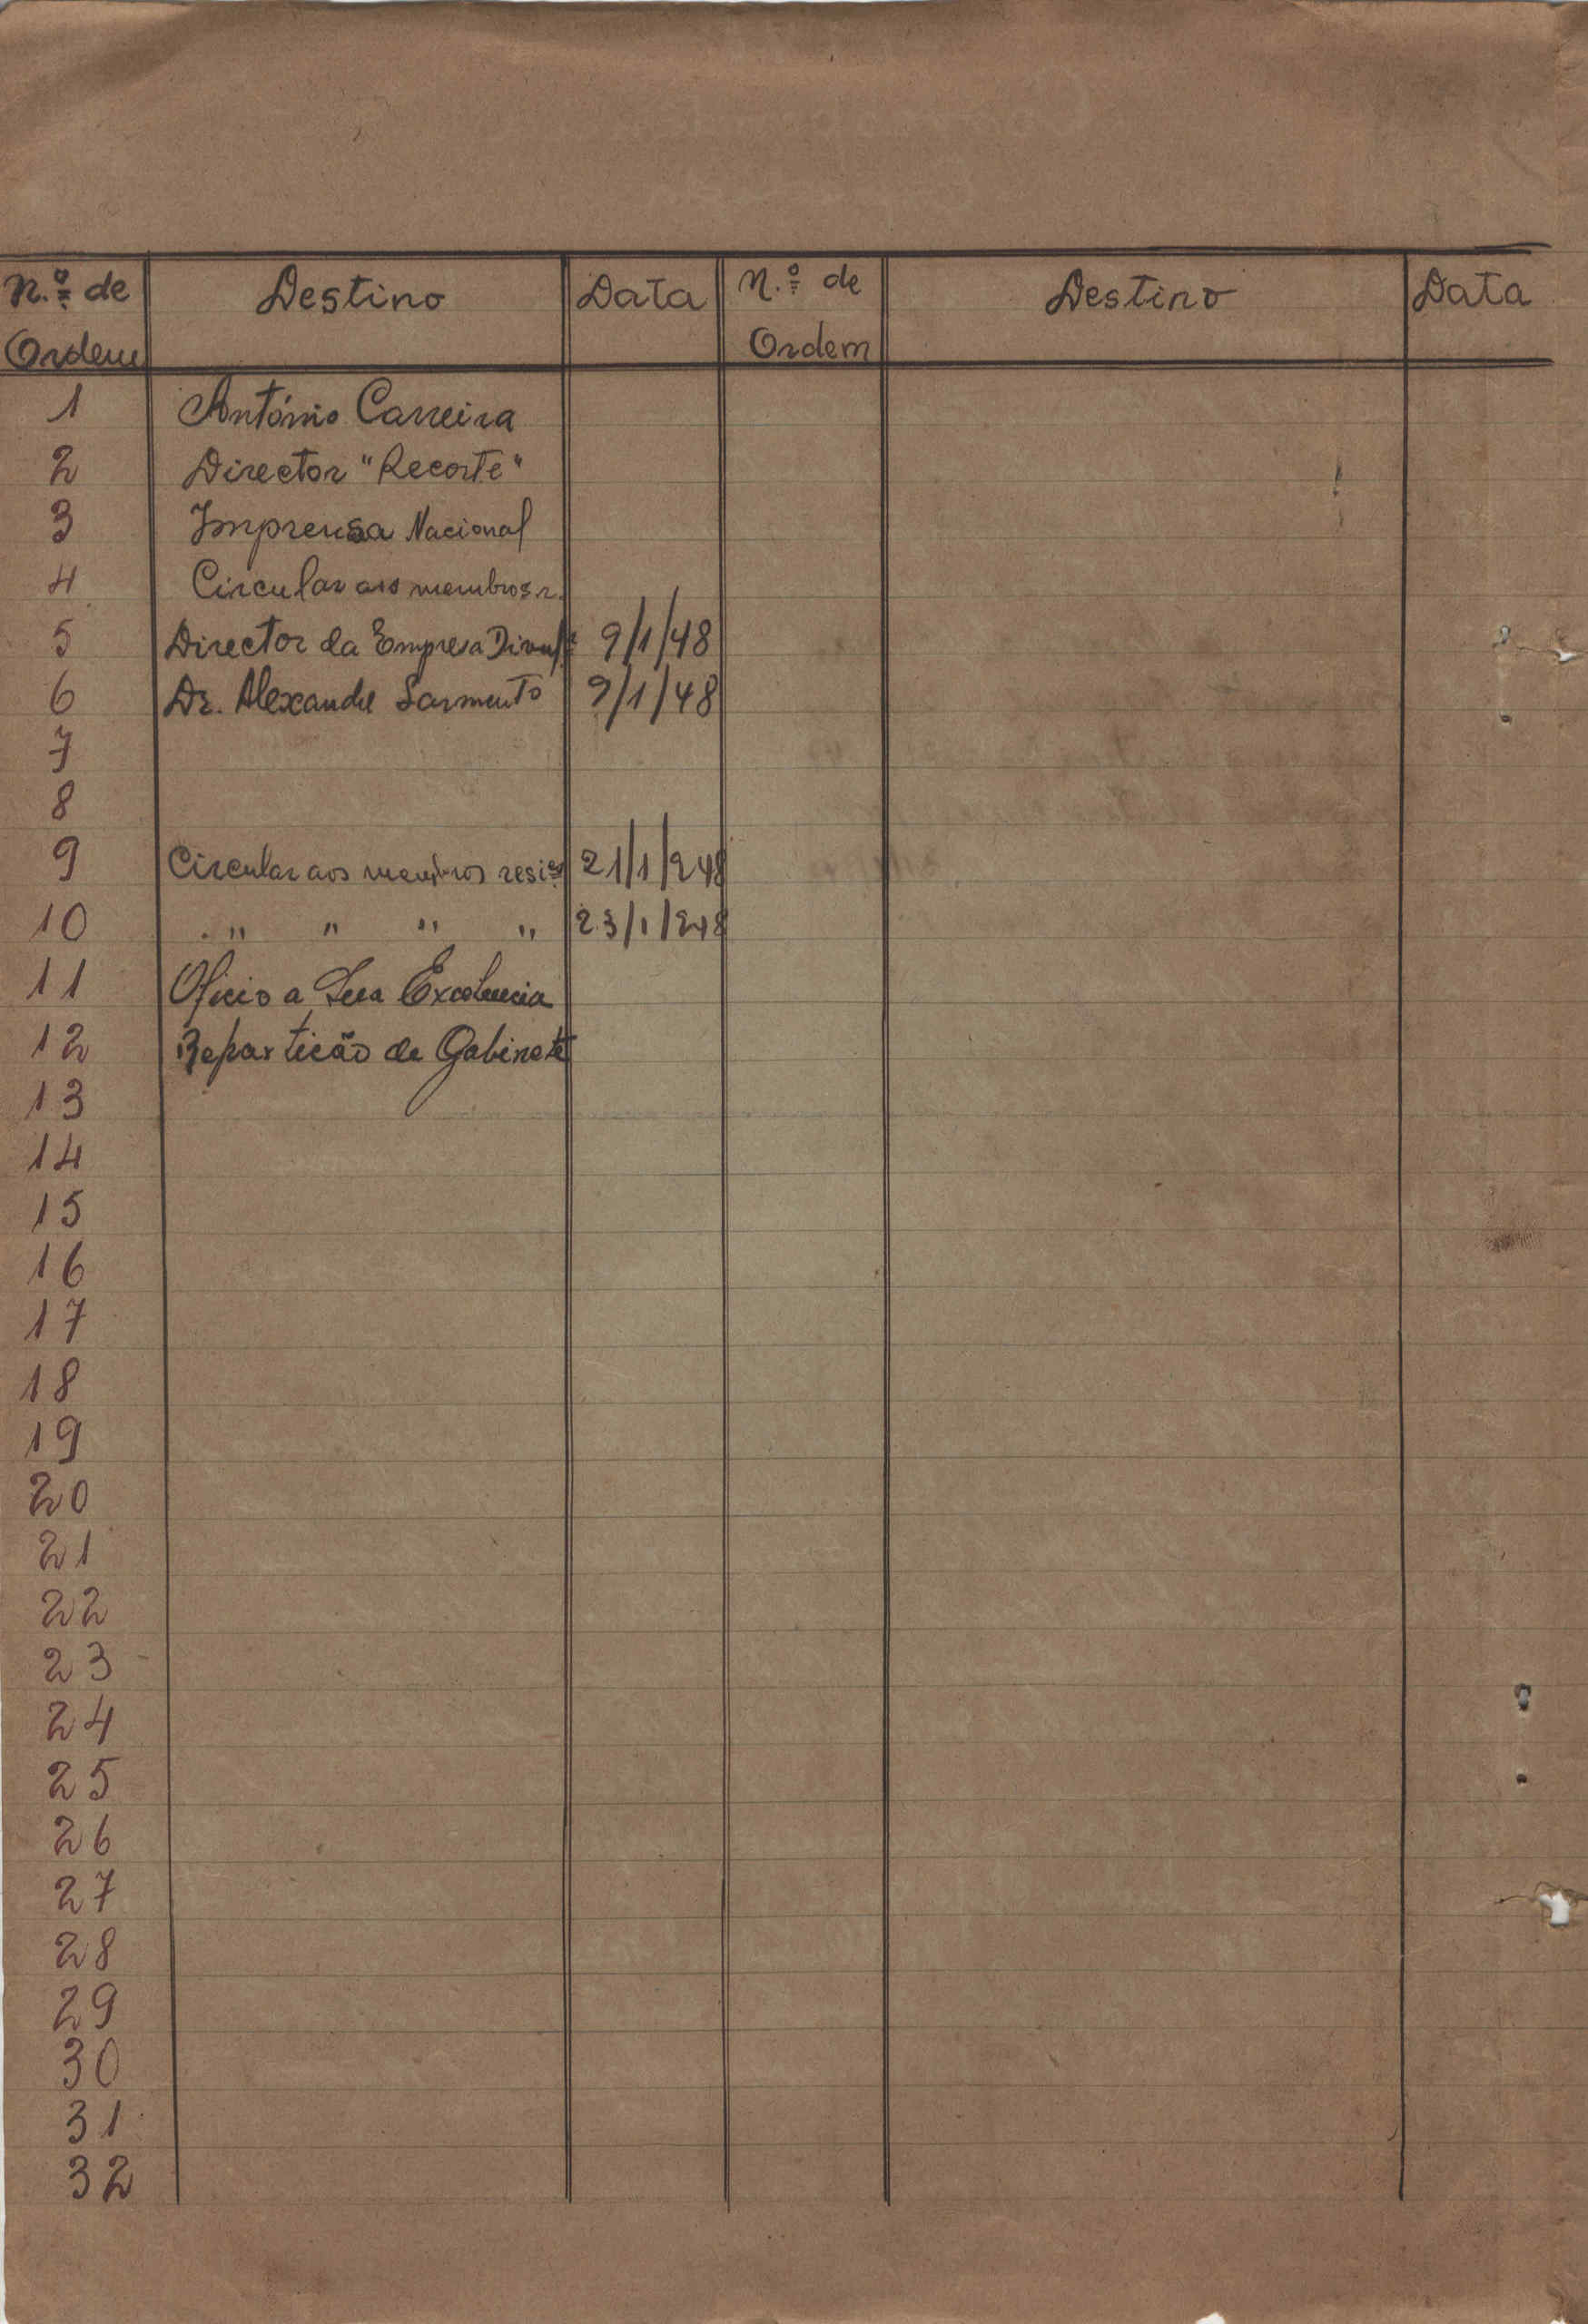 N.º de Destino Data N.º de Destino Data
Ordem Ordem
1 António Carreira
2 Director "Recorte"
3 Imprensa Nacional
4 Circular aos membros r.
5 Director da Empresa 9/1/48
6 Dr. Alexandre Sarmento 9/1/48
7
8
9 Circular aos membros resi.es 21/1/948
10 " " " " 23/1/948
11 Oficio a Sua Excelencia
12 Repartição de Gabinete
13
14
15
16
17
18
19
20
21
22
23
24
25
26
27
28
29
30
31
32